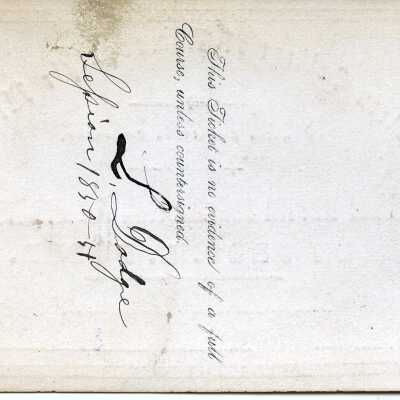 This Ticket is no evidence of a full
Course, unless countersigned.
L. Dodge
Session 1850-51